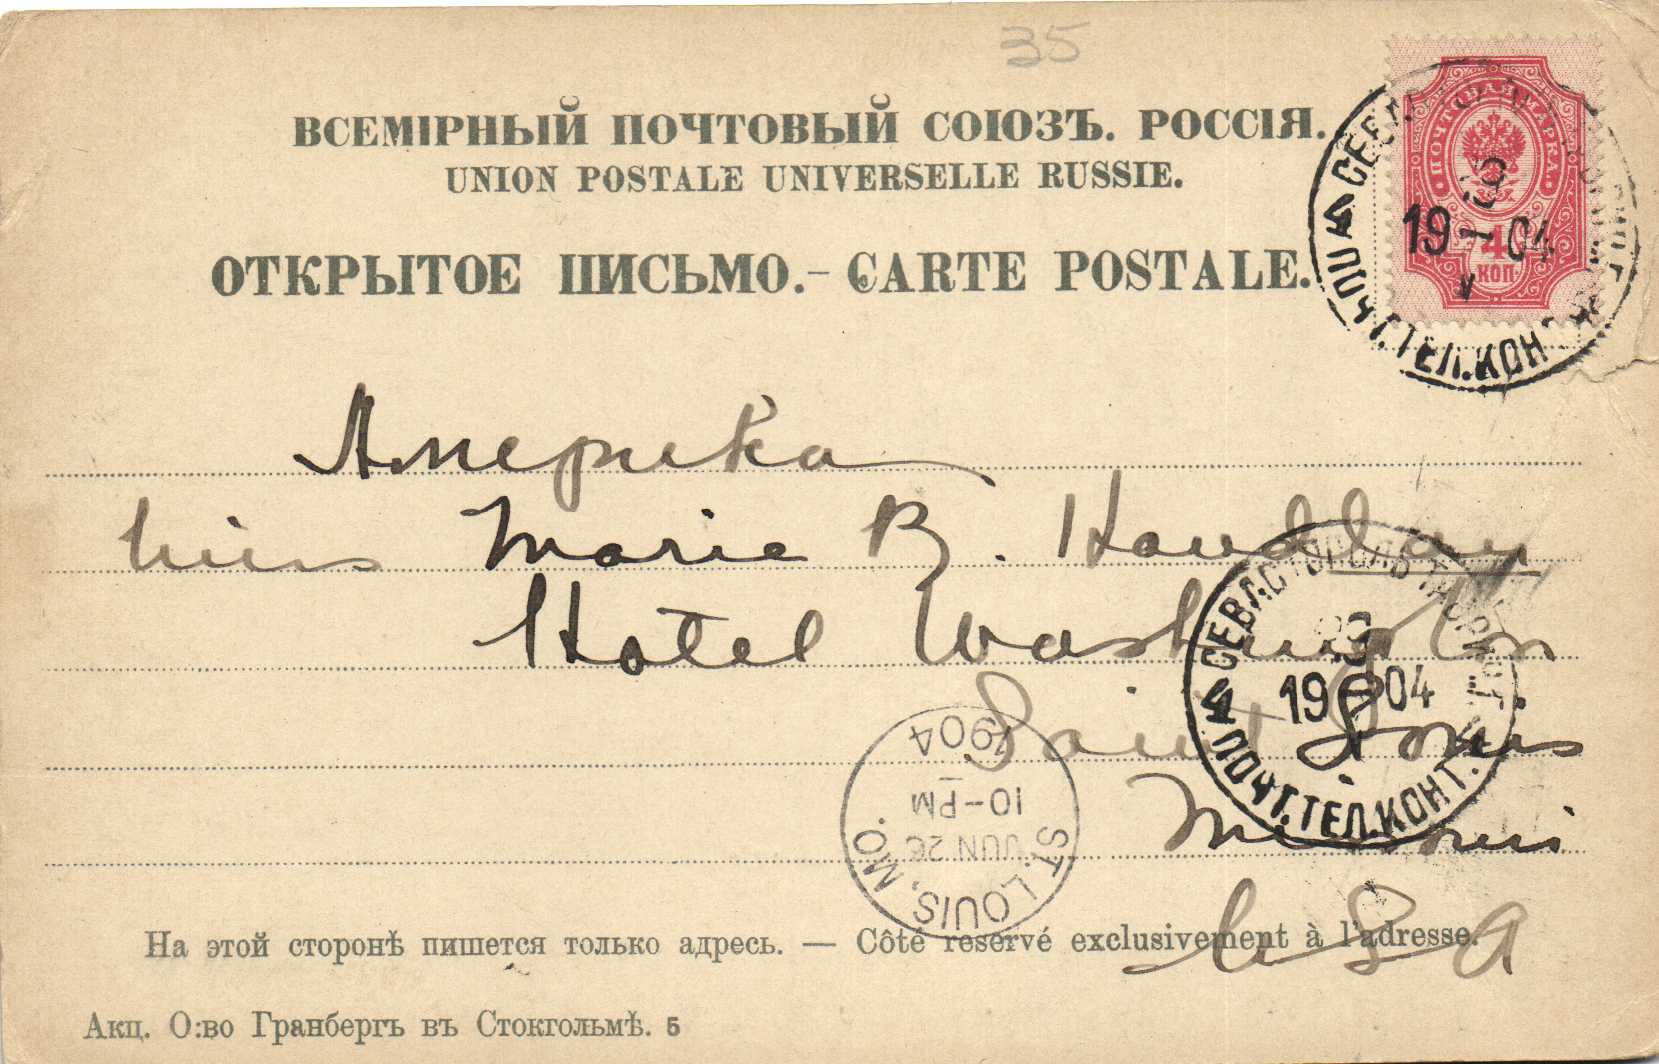 35
ВСЕМІРНЫЙ ПОЧТОВЫЙ СОЮЗЪ. РОССІЯ.
UNION POSTALE UNIVERSELLE RUSSIE.
ОТКРЫТОЕ ПИСЬМО.- CARTE POSTALE.
ПОЧТОВАЯ МАРКА
4
КОП.
19 04
ПОЧТ. ТЕЛ. КОН
Америка
Miss Marie B.
Hotel Washington
Saint Louis
Missouri
U S A
СЕВАСТОПОЛЬ ТАВРИЧ.
19 04
ПОЧТ. ТЕЛ. КОНТ.
ST. LOUIS, MO.
JUN 26
10-PM
1904
На этой сторонѣ пишется только адресь. — Côté reservé exclusivement à l'adresse.
Акц. О:во Гранбергъ въ Стокгольмѣ. 5